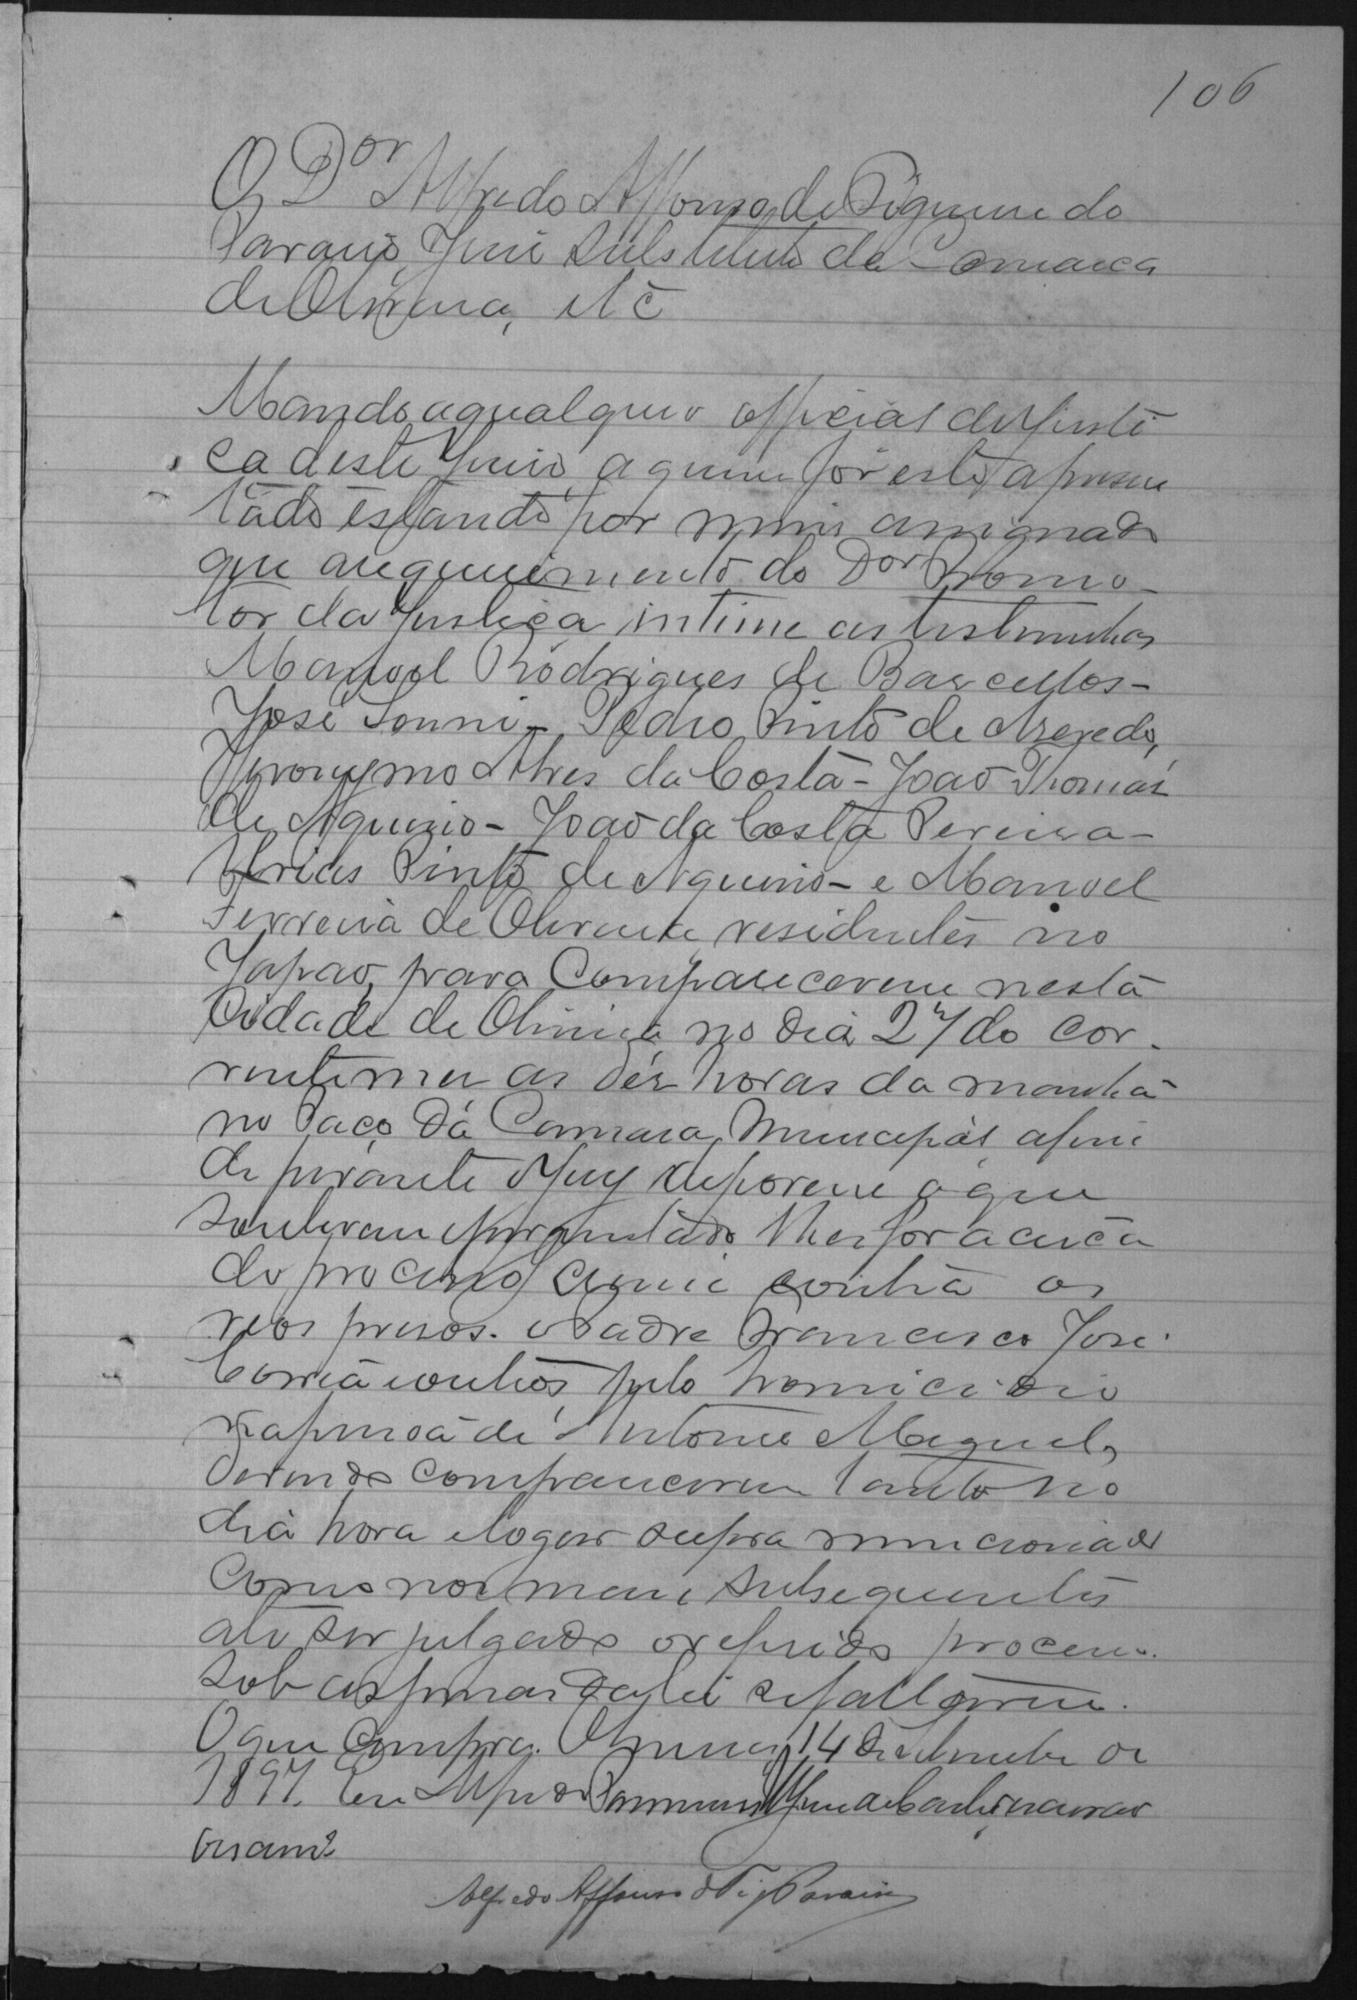 106
O Dor Alfredo Affonso de Figueiredo
Paraiso, Juiz Substituto da Comarca
de Oliveira, etc
Mando a qualquer official de Justi
ça deste Juizo, a quem fôr este apresen
tado estando por mim assignado
que a requerimento do Dor Promo-
tor da Justiça intime as testemunhas
Manoel Rodrigues de Barcellos-
José - Pedro Pinto de Azevedo,
Jeronymo Alves da Costa - João Thomas
de Aquino - João da Costa Pereira -
Urias Pinto de Aquino - e Manoel
Ferreira de Oliveira residentes no
Japão, para comparecerem nesta
Cidade de Oliveira no dia 27 do cor-
rente mez as dez horas da manhã
no Paço da Camara Municipal afim
de perante o Jury deporem o que
souberem e perguntado lhes for acerca
do processo crime contra os
reos presos o Padre Francisco José
Corrêa e outros, pelo homicidio
na pessoa de Antonio Miguel,
devendo comparecerem tanto no
dia hora e logar supra mencionados
como nos mais subsequentes
até ser julgado o referido processo
sob as penas da lei se faltarem.
O que cumpra. Oliveira, 14 de Setembro de
1897. Eu Alfredo
Alfredo Affonso de Fig Paraiso